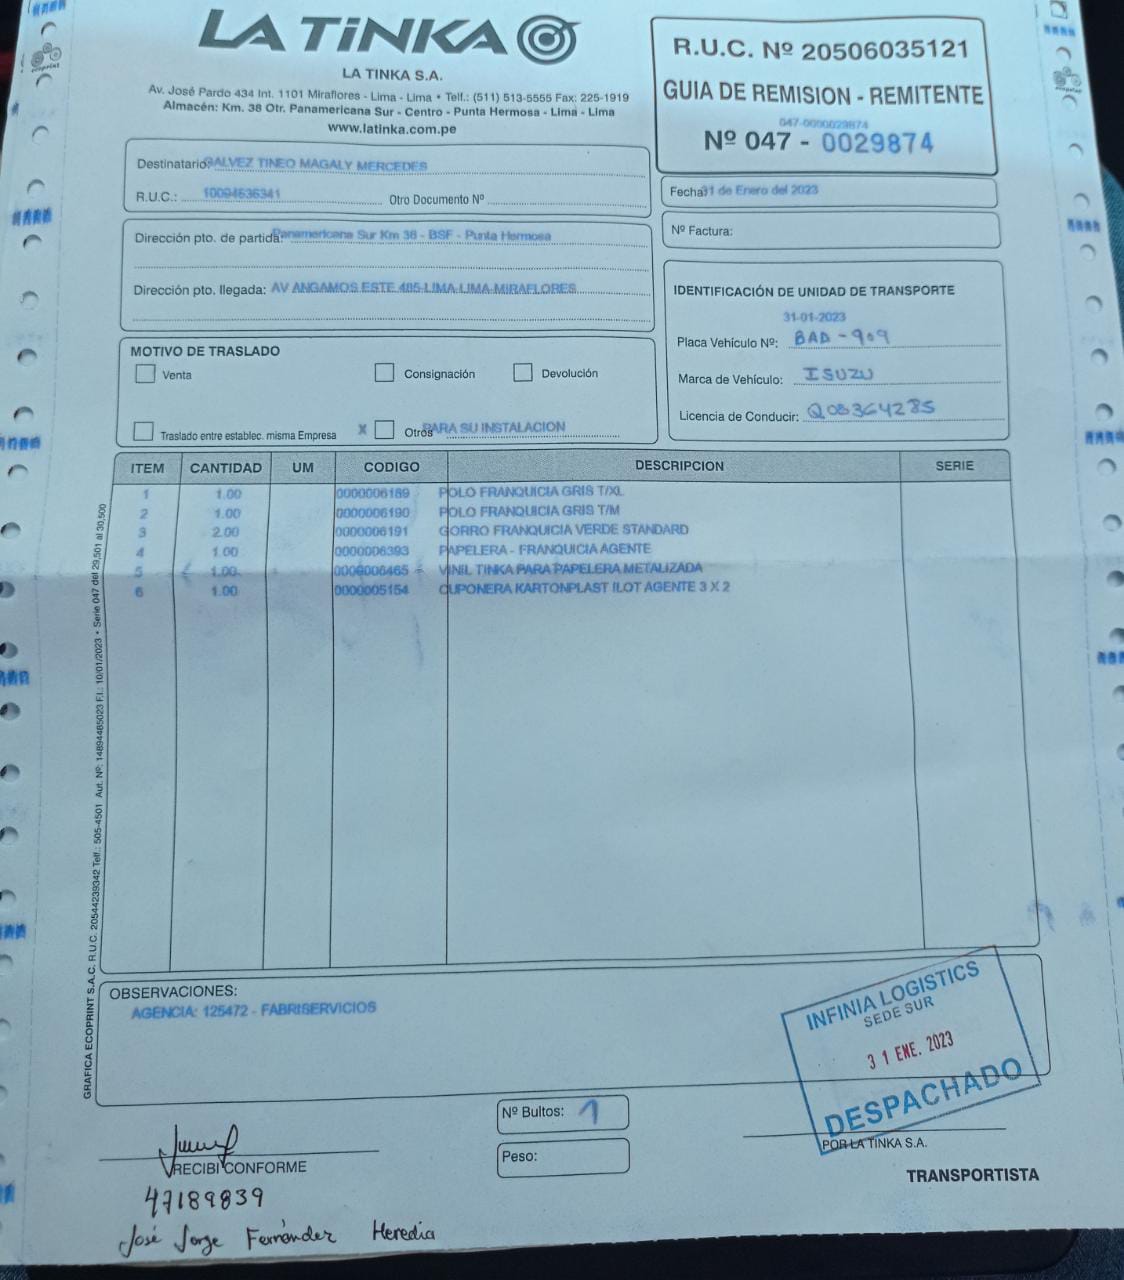 LA TiNKA
LA TINKA S.A.
Av. José Pardo 434 Int. 1101 Miraflores - Lima - Lima • Telf.: (511) 513-5555 Fax: 225-1919
Almacén: Km. 38 Otr. Panamericana Sur - Centro - Punta Hermosa - Lima - Lima
www.latinka.com.pe
R.U.C. Nº 20506035121
GUIA DE REMISION - REMITENTE
047-0000029874
Nº 047 - 0029874
Destinatario: GALVEZ TINEO MAGALY MERCEDES
R.U.C.: 10094636341 Otro Documento Nº
Fecha: 31 de Enero del 2023
Nº Factura:
Dirección pto. de partida: Panamericana Sur Km 38 - BSF - Punta Hermosa
Dirección pto. llegada: AV ANGAMOS ESTE 485-LIMA-LIMA-MIRAFLORES
IDENTIFICACIÓN DE UNIDAD DE TRANSPORTE
31-01-2023
Placa Vehículo Nº: BAD-909
Marca de Vehículo: ISUZU
Licencia de Conducir: Q08364285
MOTIVO DE TRASLADO
Venta Consignación Devolución
Traslado entre establec. misma Empresa X Otros PARA SU INSTALACION
ITEM CANTIDAD UM CODIGO DESCRIPCION SERIE
1 1.00 0000006189 POLO FRANQUICIA GRIS T/XL
2 1.00 0000006190 POLO FRANQUICIA GRIS T/M
3 2.00 0000006191 GORRO FRANQUICIA VERDE STANDARD
4 1.00 0000006393 PAPELERA - FRANQUICIA AGENTE
5 1.00 0000006465 VINIL TINKA PARA PAPELERA METALIZADA
6 1.00 0000005154 CUPONERA KARTONPLAST ILOT AGENTE 3 X 2
GRAFICA ECOPRINT S.A.C. R.U.C. 20544239342 Telf.: 505-4501 Aut. Nº: 14894485023 F.I.: 10/01/2023 • Serie 047 del 29,501 al 30,500
OBSERVACIONES:
AGENCIA: 125472 - FABRISERVICIOS
INFINIA LOGISTICS
SEDE SUR
31 ENE. 2023
DESPACHADO
Nº Bultos: 1
Peso:
RECIBI CONFORME
47189839
José Jorge Fernández Heredia
POR LA TINKA S.A.
TRANSPORTISTA